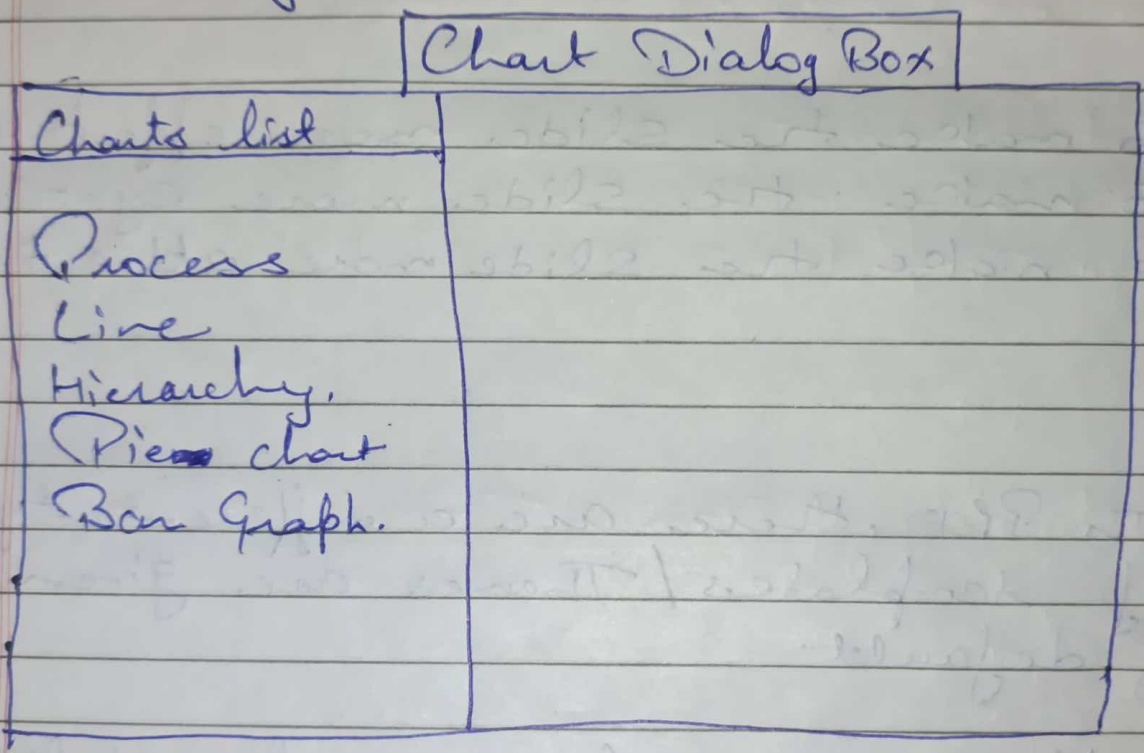 Chart Dialog Box
Charts list
Process
Line
Hierarchy.
Pie chart
Bar Graph.